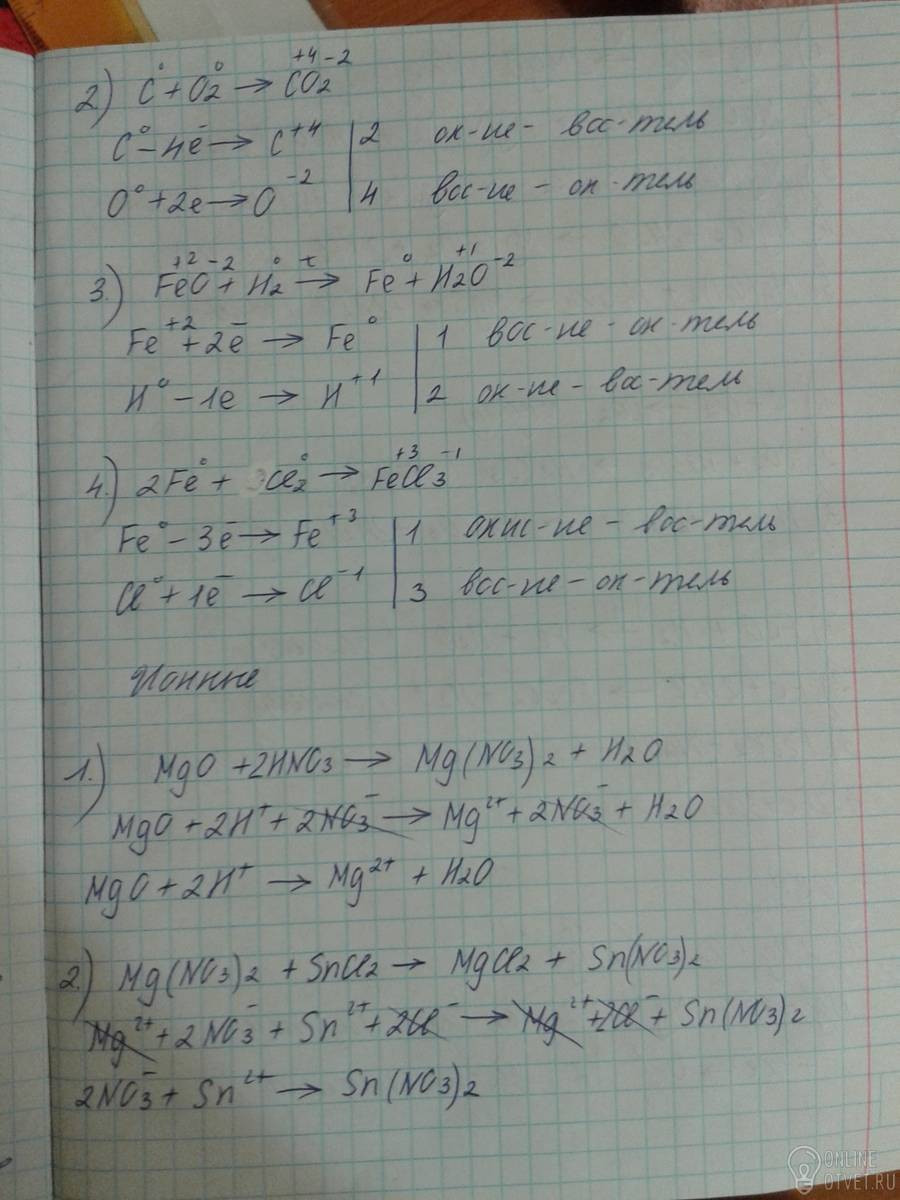 2.) C⁰ + O₂⁰ → C⁺⁴O₂⁻²
C⁰ - 4ē → C⁺⁴ | 2 ок-ие - вос-тель
O⁰ + 2e → O⁻² | 4 вос-ие - ок-тель
3.) Fe⁺²O⁻² + H₂⁰ →ᵗ Fe⁰ + H₂⁺¹O⁻²
Fe⁺² + 2ē → Fe⁰ | 1 вос-ие - ок-тель
H⁰ - 1e → H⁺¹ | 2 ок-ие - вос-тель
4.) 2Fe⁰ + 3Cl₂⁰ → Fe⁺³Cl₃⁻¹
Fe⁰ - 3ē → Fe⁺³ | 1 окис-ие - вос-тель
Cl⁰ + 1ē → Cl⁻¹ | 3 вос-ие - ок-тель
Ионные
1.) MgO + 2HNO₃ → Mg(NO₃)₂ + H₂O
MgO + 2H⁺ + 2NO₃⁻ → Mg²⁺ + 2NO₃⁻ + H₂O
MgO + 2H⁺ → Mg²⁺ + H₂O
2.) Mg(NO₃)₂ + SnCl₂ → MgCl₂ + Sn(NO₃)₂
Mg²⁺ + 2NO₃⁻ + Sn²⁺ + 2Cl⁻ → Mg²⁺ + 2Cl⁻ + Sn(NO₃)₂
2NO₃⁻ + Sn²⁺ → Sn(NO₃)₂
ONLINE
OTVET.RU